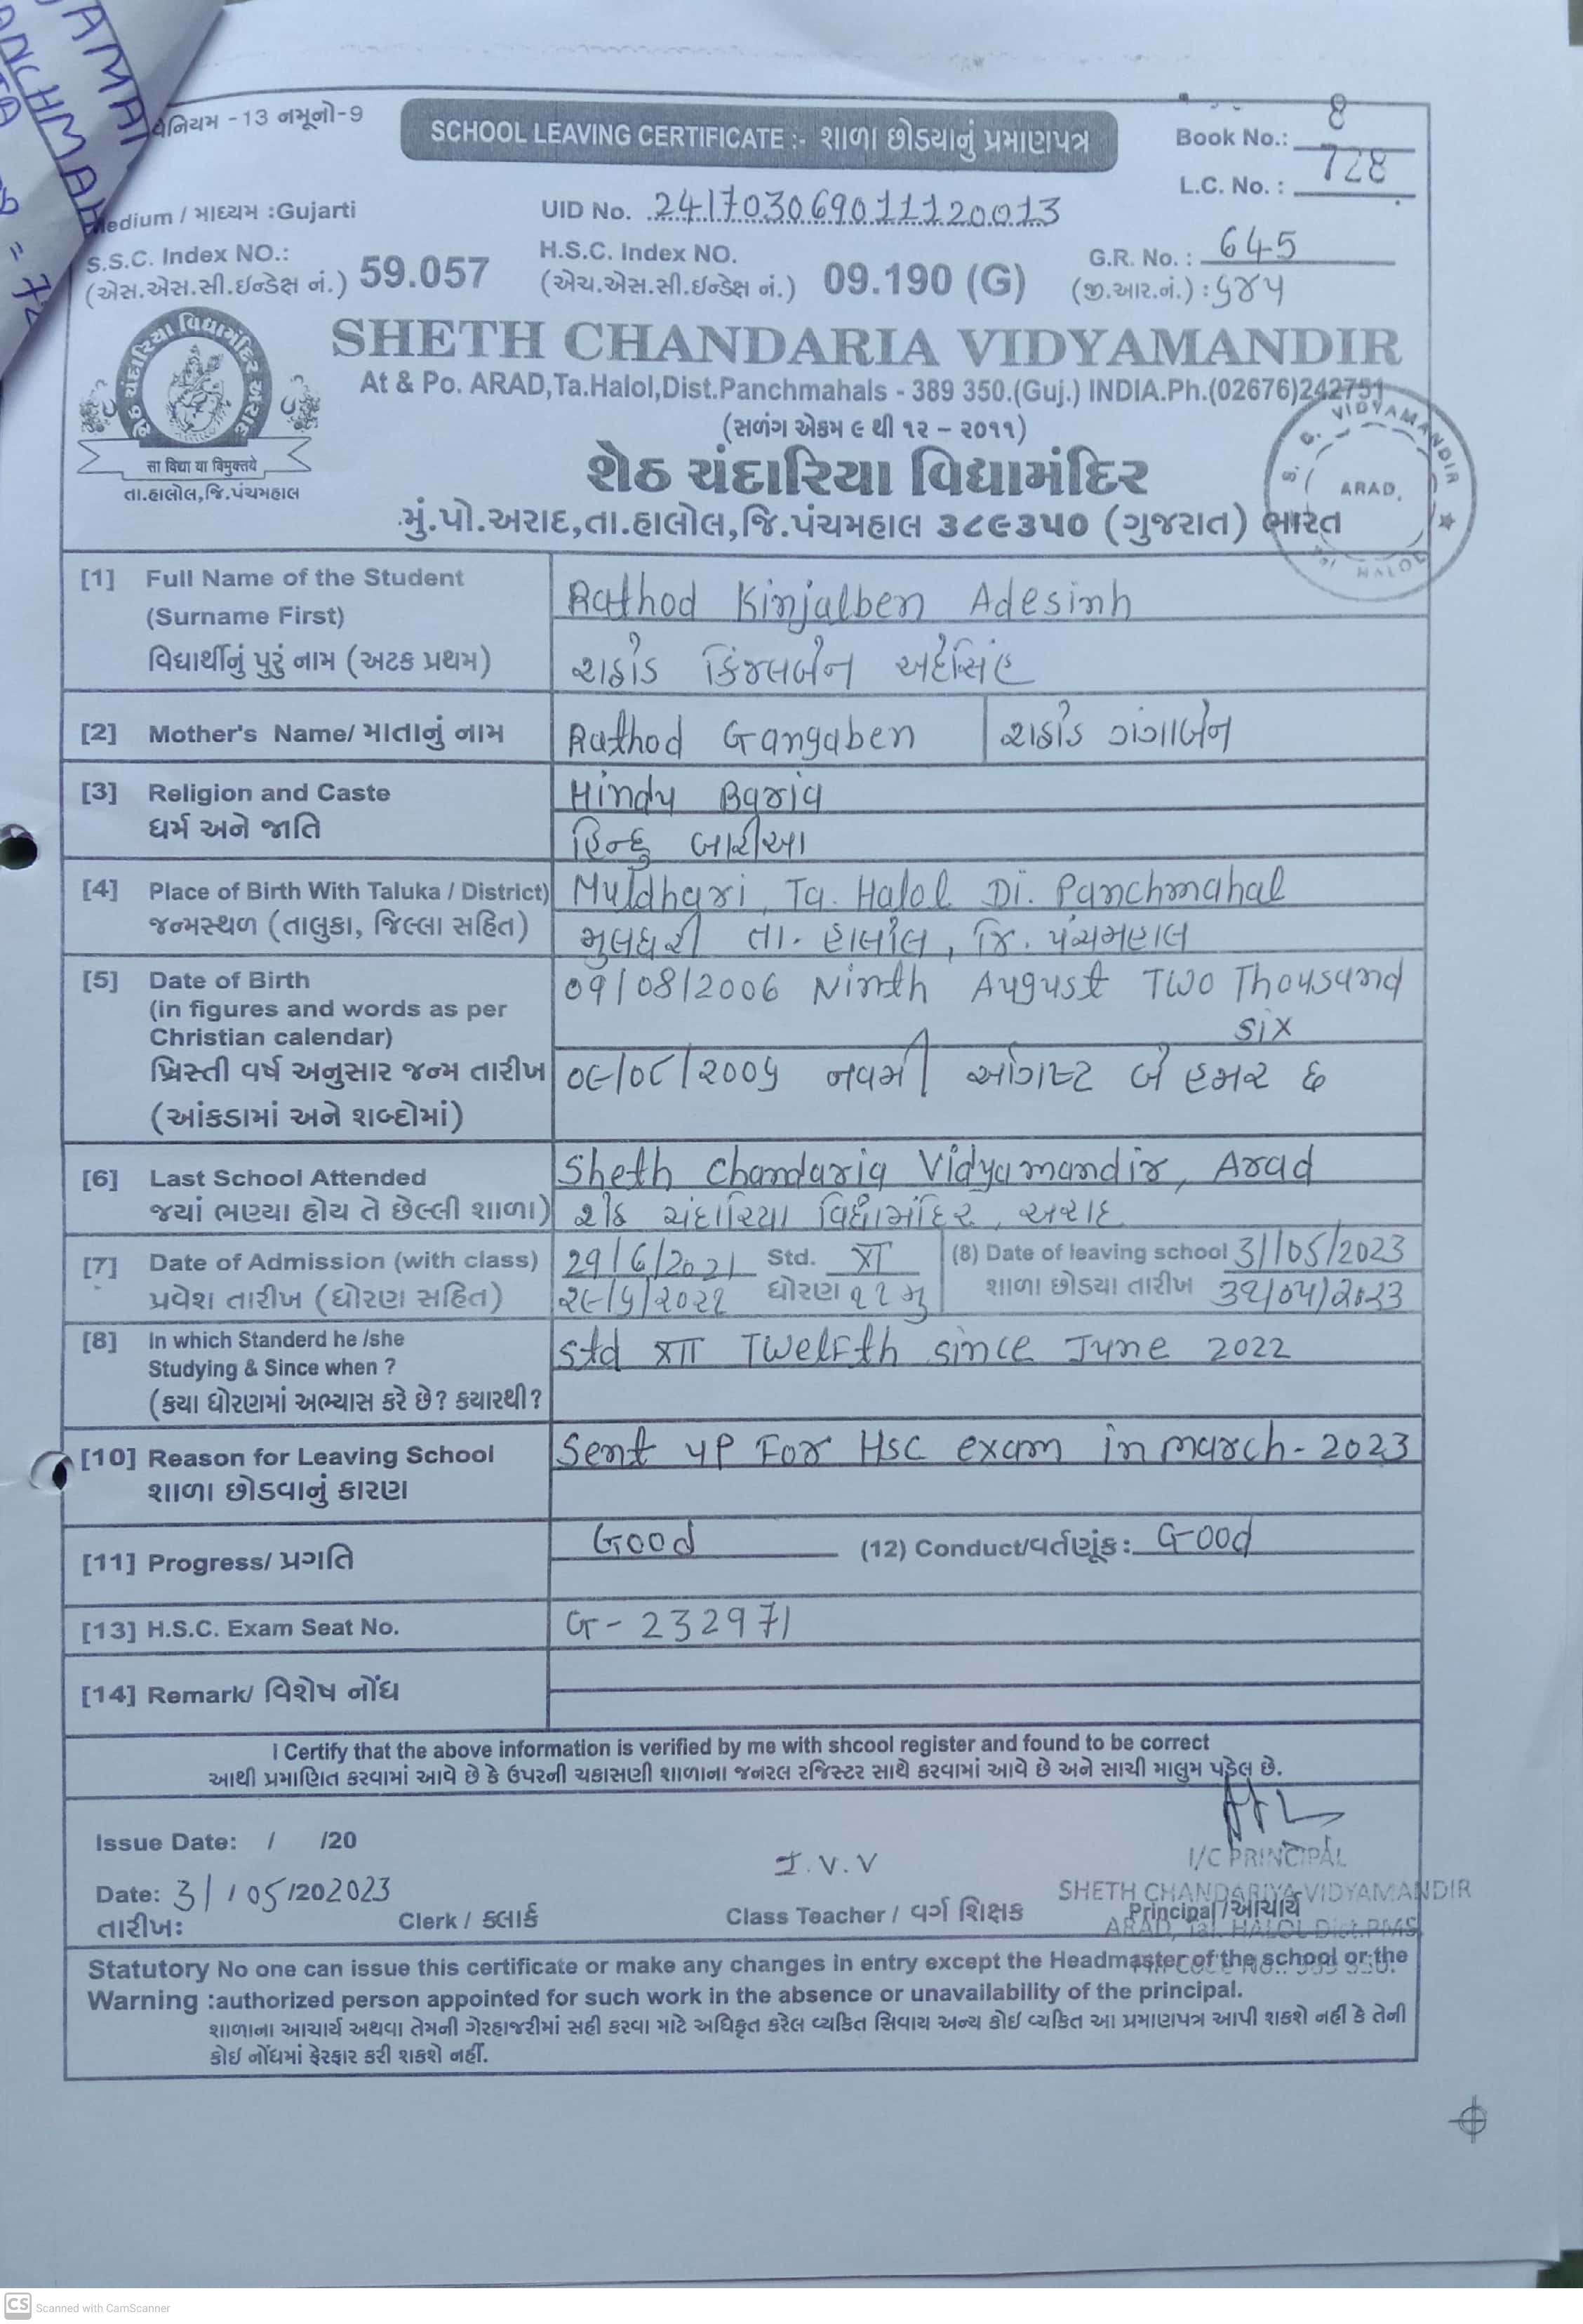 વિનિયમ - 13 નમૂનો-9
SCHOOL LEAVING CERTIFICATE :- શાળા છોડયાનું પ્રમાણપત્ર
Book No.: 8
L.C. No. : 728
Medium / માધ્યમ :Gujarti
UID No. 241703069011120013
S.S.C. Index NO.:
(એસ.એસ.સી.ઇન્ડેક્ષ નં.) 59.057
H.S.C. Index NO.
(એચ.એસ.સી.ઇન્ડેક્ષ નં.) 09.190 (G)
G.R. No. : 645
(જી.આર.નં.) : ૬૪૫
શેઠ ચંદારિયા વિદ્યામંદિર અરાદ
सा विद्या या विमुक्तये
તા.હાલોલ,જિ.પંચમહાલ
SHETH CHANDARIA VIDYAMANDIR
At & Po. ARAD,Ta.Halol,Dist.Panchmahals - 389 350.(Guj.) INDIA.Ph.(02676)242751
(સળંગ એકમ ૯ થી ૧૨ – ૨૦૧૧)
શેઠ ચંદારિયા વિદ્યામંદિર
મું.પો.અરાદ,તા.હાલોલ,જિ.પંચમહાલ ૩૮૯૩૫૦ (ગુજરાત) ભારત
VIDYAMANDIR
ARAD,
HALOL
[1] Full Name of the Student
(Surname First)
વિદ્યાર્થીનું પુરું નામ (અટક પ્રથમ)
Rathod Kinjalben Adesinh
રાઠોડ કિંજલબેન અદેસિંહ
[2] Mother's Name/ માતાનું નામ
Rathod Gangaben
રાઠોડ ગંગાબેન
[3] Religion and Caste
ધર્મ અને જાતિ
Hindu Baria
હિન્દુ બારીઆ
[4] Place of Birth With Taluka / District)
જન્મસ્થળ (તાલુકા, જિલ્લા સહિત)
Muldhari, Ta. Halol Di. Panchmahal
મુલધરી તા. હાલોલ, જિ. પંચમહાલ
[5] Date of Birth
(in figures and words as per
Christian calendar)
ખ્રિસ્તી વર્ષ અનુસાર જન્મ તારીખ
(આંકડામાં અને શબ્દોમાં)
09/08/2006 Ninth August Two Thousand
six
૦૯/૦૮/૨૦૦૬ નવમી ઓગષ્ટ બે હજાર છ
[6] Last School Attended
જયાં ભણ્યા હોય તે છેલ્લી શાળા)
Sheth Chandaria Vidyamandir, Arad
શેઠ ચંદારિયા વિદ્યામંદિર, અરાદ
[7] Date of Admission (with class)
પ્રવેશ તારીખ (ધોરણ સહિત)
29/6/2021 Std. XI
૨૯/૬/૨૦૨૧ ધોરણ ૧૧ મુ
(8) Date of leaving school 31/05/2023
શાળા છોડયા તારીખ ૩૧/૦૫/૨૦૨૩
[8] In which Standerd he /she
Studying & Since when ?
(કયા ધોરણમાં અભ્યાસ કરે છે? કયારથી?
Std XII Twelfth since June 2022
[10] Reason for Leaving School
શાળા છોડવાનું કારણ
Sent up For Hsc exam in march-2023
[11] Progress/ પ્રગતિ
Good
(12) Conduct/વર્તણૂંક: Good
[13] H.S.C. Exam Seat No.
G-232971
[14] Remark/ વિશેષ નોંધ
I Certify that the above information is verified by me with shcool register and found to be correct
આથી પ્રમાણિત કરવામાં આવે છે કે ઉપરની ચકાસણી શાળાના જનરલ રજિસ્ટર સાથે કરવામાં આવે છે અને સાચી માલુમ પડેલ છે.
Issue Date: / /20
Date: 31/05/202023
તારીખઃ
Clerk / કલાર્ક
I.V.V
Class Teacher / વર્ગ શિક્ષક
I/C PRINCIPAL
SHETH CHANDARIYA VIDYAMANDIR
Principal/આચાર્ય
ARAD, Tal. HALOL Dict.PMS.
Statutory No one can issue this certificate or make any changes in entry except the Headmaster of the school or the
Warning :authorized person appointed for such work in the absence or unavailability of the principal.
શાળાના આચાર્ય અથવા તેમની ગેરહાજરીમાં સહી કરવા માટે અધિકૃત કરેલ વ્યકિત સિવાય અન્ય કોઈ વ્યકિત આ પ્રમાણપત્ર આપી શકશે નહીં કે તેની
કોઇ નોંધમાં ફેરફાર કરી શકશે નહીં.
CS Scanned with CamScanner